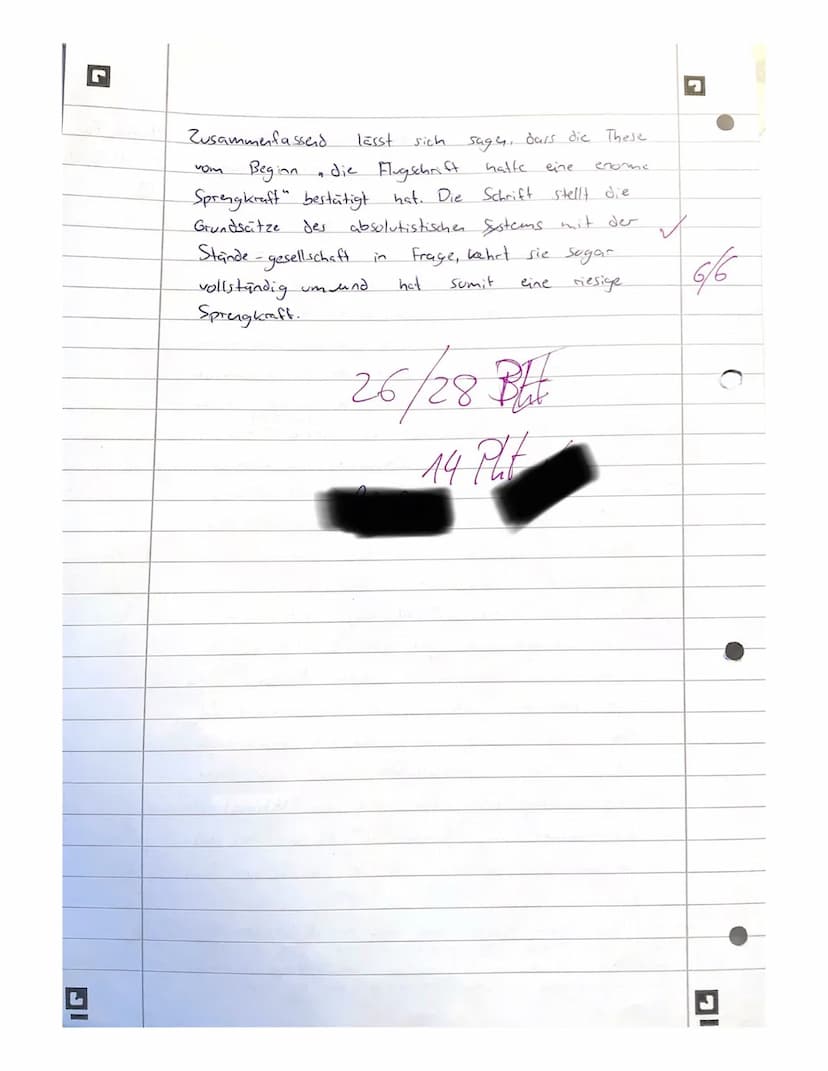 Zusammenfassend lässt sich sagen, dass die These
vom Beginn „die Flugschrift hatte eine enorme
Sprengkraft" bestätigt hat. Die Schrift stellt die
Grundsätze des absolutistischen Systems mit der ✓
Stände-gesellschaft in Frage, kehrt sie sogar
vollständig um und hat somit eine riesige
Sprengkraft.
6/6
26/28
14 Pkt